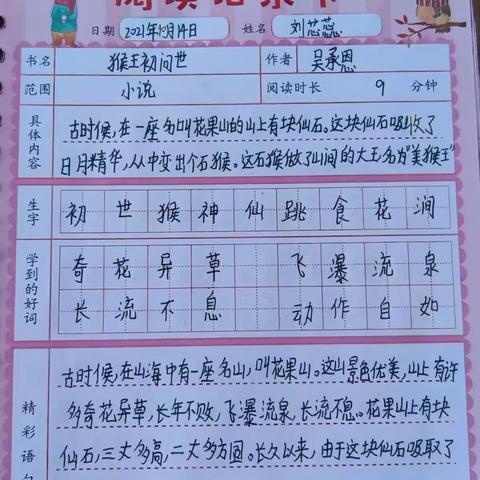 阅读记录卡
日期 2021年10月14日 姓名 刘芯蕊
书名 猴王初问世 作者 吴承恩
范围 小说 阅读时长 9 分钟
具体内容
古时候,在一座名叫花果山的山上有块仙石。这块仙石吸收了
日月精华,从中变出个石猴。这石猴做了山间的大王,名为"美猴王"
生字 初 世 猴 神 仙 跳 食 花 涧
学到的好词
奇花异草 飞瀑流泉
长流不息 动作自如
精彩语句
古时候,在山海中有一座名山,叫花果山。这山景色优美,山上有许
多奇花异草,长年不败,飞瀑流泉,长流不息。花果山上有块
仙石,三丈多高,二丈多方圆。长久以来,由于这块仙石吸取了